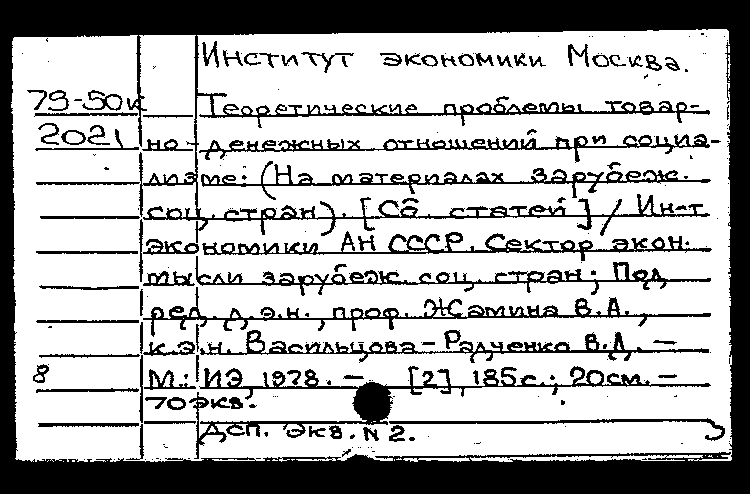 Институт экономики Москва.
79-50к Теоретические проблемы товар-
2021 но-денежных отношений при социа-
лизме: (На материалах зарубеж.
соц. стран). [Сб. статей] / Ин-т
экономики АН СССР. Сектор экон.
мысли зарубеж. соц. стран; Под
ред. д.э.н., проф. Жамина В.А.,
к.э.н. Васильцова-Радченко В.Д. —
8 М.: ИЭ, 1978. — [2], 185с.; 20см. —
70экз.
Дсп. Экз. N 2.